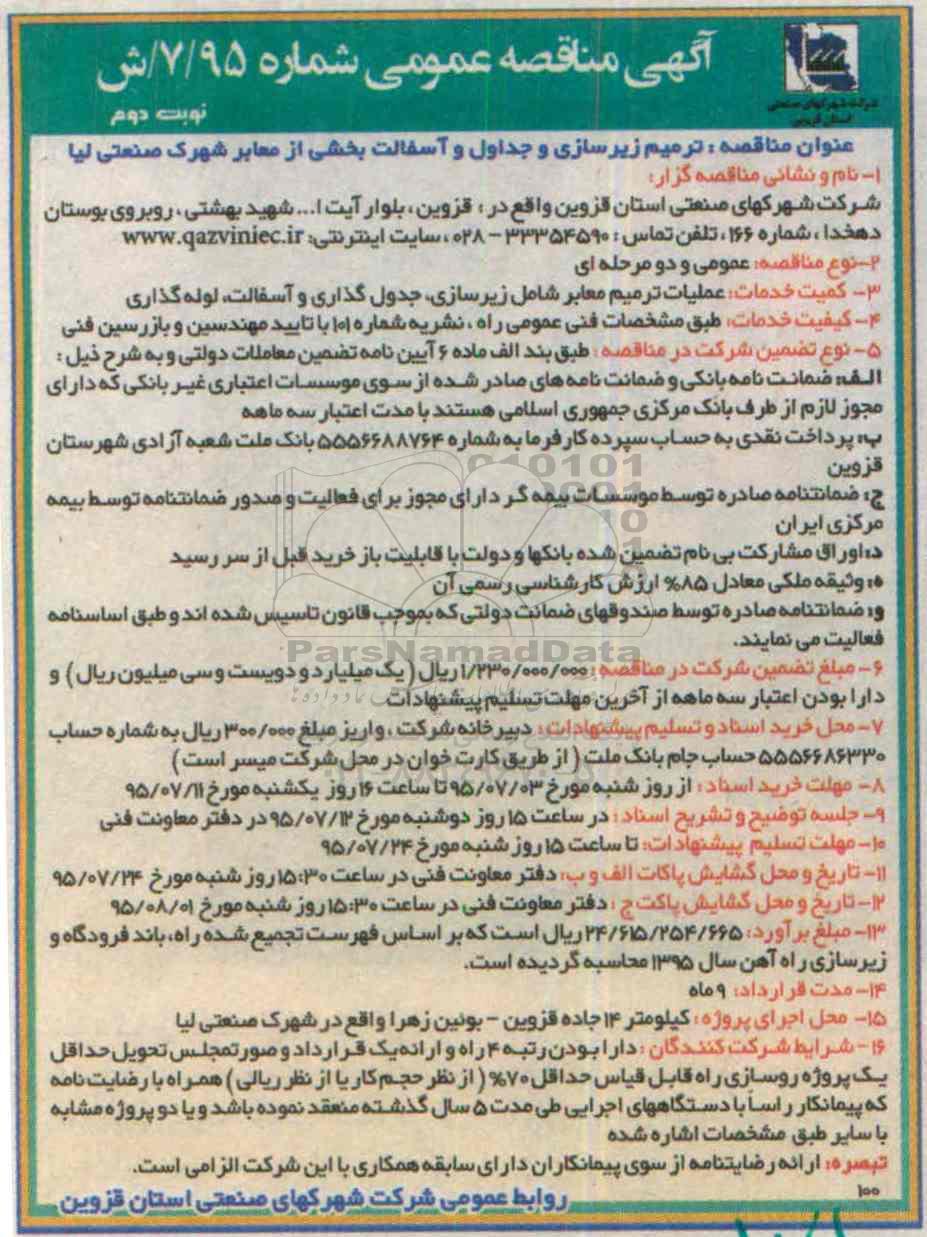 آگهی مناقصه عمومی شماره ۷/۹۵/ش
نوبت دوم
شرکت شهرکهای صنعتی
استان قزوین
عنوان مناقصه : ترمیم زیرسازی و جداول و آسفالت بخشی از معابر شهرک صنعتی لیا
۱- نام و نشانی مناقصه گزار:
شرکت شهرکهای صنعتی استان قزوین واقع در : قزوین ، بلوار آیت ا... شهید بهشتی ، روبروی بوستان
دهخدا ، شماره ۱۶۶ ، تلفن تماس : ۳۳۳۵۴۵۹۰ – ۰۲۸ ، سایت اینترنتی: www.qazviniec.ir
۲-نوع مناقصه: عمومی و دو مرحله ای
۳- کمیت خدمات: عملیات ترمیم معابر شامل زیرسازی، جدول گذاری و آسفالت، لوله گذاری
۴- کیفیت خدمات: طبق مشخصات فنی عمومی راه ، نشریه شماره ۱۰۱ با تایید مهندسین و بازرسین فنی
۵- نوع تضمین شرکت در مناقصه : طبق بند الف ماده ۶ آیین نامه تضمین معاملات دولتی و به شرح ذیل :
الف: ضمانت نامه بانکی و ضمانت نامه های صادر شده از سوی موسسات اعتباری غیر بانکی که دارای
مجوز لازم از طرف بانک مرکزی جمهوری اسلامی هستند با مدت اعتبار سه ماهه
ب: پرداخت نقدی به حساب سپرده کارفرما به شماره ۵۵۵۶۶۸۸۷۶۴ بانک ملت شعبه آزادی شهرستان
قزوین
ج: ضمانتنامه صادره توسط موسسات بیمه گر دارای مجوز برای فعالیت و صدور ضمانتنامه توسط بیمه
مرکزی ایران
د: اوراق مشارکت بی نام تضمین شده بانکها و دولت با قابلیت باز خرید قبل از سر رسید
ه: وثیقه ملکی معادل ۸۵% ارزش کارشناسی رسمی آن
و: ضمانتنامه صادره توسط صندوقهای ضمانت دولتی که بموجب قانون تاسیس شده اند و طبق اساسنامه
فعالیت می نمایند.
ParsNamadData
۶- مبلغ تضمین شرکت در مناقصه : ۱/۲۳۰/۰۰۰/۰۰۰ ریال ( یک میلیارد و دویست و سی میلیون ریال ) و
دارا بودن اعتبار سه ماهه از آخرین مهلت تسلیم پیشنهادات
۷- محل خرید اسناد و تسلیم پیشنهادات : دبیرخانه شرکت ، واریز مبلغ ۳۰۰/۰۰۰ ریال به شماره حساب
۵۵۵۶۶۸۶۳۳۰ حساب جام بانک ملت ( از طریق کارت خوان در محل شرکت میسر است )
۸- مهلت خرید اسناد : از روز شنبه مورخ ۹۵/۰۷/۰۳ تا ساعت ۱۶ روز یکشنبه مورخ ۹۵/۰۷/۱۱
۹- جلسه توضیح و تشریح اسناد : در ساعت ۱۵ روز دوشنبه مورخ ۹۵/۰۷/۱۲ در دفتر معاونت فنی
۱۰- مهلت تسلیم پیشنهادات: تا ساعت ۱۵ روز شنبه مورخ ۹۵/۰۷/۲۴
۱۱- تاریخ و محل گشایش پاکات الف و ب: دفتر معاونت فنی در ساعت ۱۵:۳۰ روز شنبه مورخ ۹۵/۰۷/۲۴
۱۲- تاریخ و محل گشایش پاکت ج : دفتر معاونت فنی در ساعت ۱۵:۳۰ روز شنبه مورخ ۹۵/۰۸/۰۱
۱۳- مبلغ برآورد: ۲۴/۶۱۵/۲۵۴/۶۶۵ ریال است که بر اساس فهرست تجمیع شده راه، باند فرودگاه و
زیرسازی راه آهن سال ۱۳۹۵ محاسبه گردیده است.
۱۴- مدت قرارداد: ۹ ماه
۱۵- محل اجرای پروژه : کیلومتر ۱۴ جاده قزوین – بوئین زهرا واقع در شهرک صنعتی لیا
۱۶- شرایط شرکت کنندگان : دارا بودن رتبه ۴ راه و ارائه یک قرارداد و صورتمجلس تحویل حداقل
یک پروژه روسازی راه قابل قیاس حداقل ۷۰% ( از نظر حجم کار یا از نظر ریالی ) همراه با رضایت نامه
که پیمانکار راساً با دستگاههای اجرایی طی مدت ۵ سال گذشته منعقد نموده باشد و یا دو پروژه مشابه
با سایر طبق مشخصات اشاره شده
تبصره: ارائه رضایتنامه از سوی پیمانکاران دارای سابقه همکاری با این شرکت الزامی است.
۱۰۰
روابط عمومی شرکت شهرکهای صنعتی استان قزوین